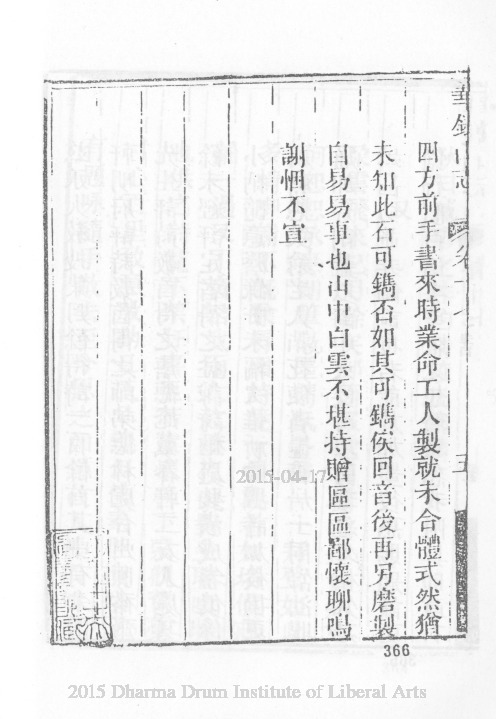 四方前手書來時業命工人製就未合體式然猶
未知此石可鐫否如其可鐫俟回音後再另磨製
自易易事也山中白雲不堪持贈區區鄙懷聊鳴
謝悃不宣
2015-04-17
366
2015 Dharma Drum Institute of Liberal Arts